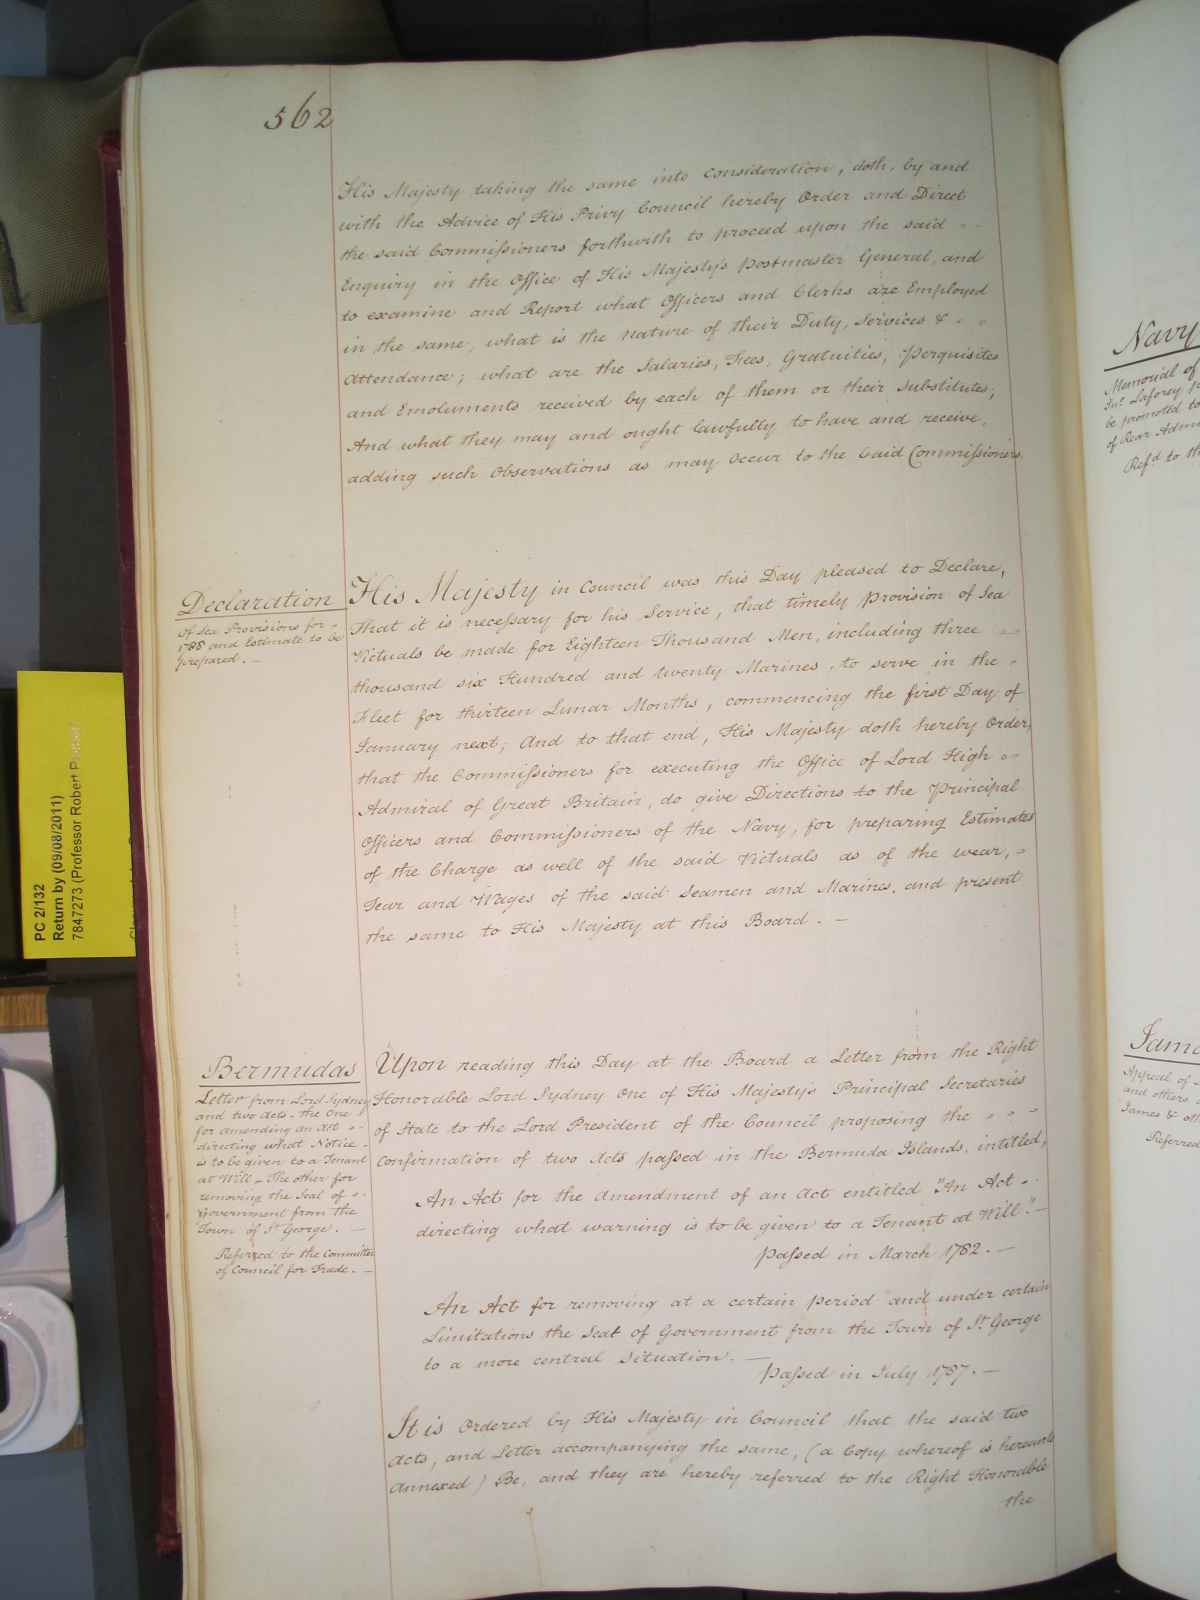 562
His Majesty taking the same into Consideration, doth, by and
with the Advice of His Privy Council hereby Order and Direct
the said Commissioners forthwith to proceed upon the said
Enquiry in the Office of His Majesty's Postmaster General, and
to examine and Report what Officers and Clerks are Employed
in the same, what is the nature of their Duty, Services &
Attendance; what are the Salaries, Fees, Gratuities, Perquisites
and Emoluments received by each of them or their Substitutes;
And what they may and ought lawfully to have and receive,
adding such Observations as may Occur to the Said Commissioners.
Declaration
Of Sea Provisions for
1788 and Estimate to be
prepared. —
His Majesty in Council was this Day pleased to Declare,
That it is necessary for his Service, that timely Provision of Sea
Victuals be made for Eighteen Thousand Men, including three
thousand six Hundred and twenty Marines, to serve in the
Fleet for thirteen Lunar Months, commencing the first Day of
January next; And to that end, His Majesty doth hereby Order,
that the Commissioners for executing the Office of Lord High
Admiral of Great Britain, do give Directions to the Principal
Officers and Commissioners of the Navy, for preparing Estimates
of the Charge as well of the said Victuals as of the wear,
Tear and Wages of the said Seamen and Marines, and present
the same to His Majesty at this Board. —
Bermudas
Letter from Lord Sydney
and two Acts - the One
for amending an Act
directing what Notice
is to be given to a Tenant
at Will - The other for
removing the Seat of
Government from the
Town of St. George. —
Referred to the Committee
of Council for Trade. —
Upon reading this Day at the Board a Letter from the Right
Honorable Lord Sydney One of His Majesty's Principal Secretaries
of State to the Lord President of the Council proposing the
Confirmation of two Acts passed in the Bermuda Islands, intitled,
An Act for the amendment of an Act entitled "An Act
directing what warning is to be given to a Tenant at Will." —
passed in March 1782. —
An Act for removing at a certain period and under certain
Limitations the Seat of Government from the Town of St. George
to a more central Situation. —
passed in July 1787. —
It is Ordered by His Majesty in Council that the said two
Acts, and Letter accompanying the same, (a Copy whereof is hereunto
Annexed) Be, and they are hereby referred to the Right Honorable
the
PC 2/132
Return by (09/08/2011)
7847273 (Professor Robert
Navy
Memorial of
Jno. Laforey
be promoted to
of Rear Admi
Refd. to th
Jama
Appeal of
and others
James & oth
Referred